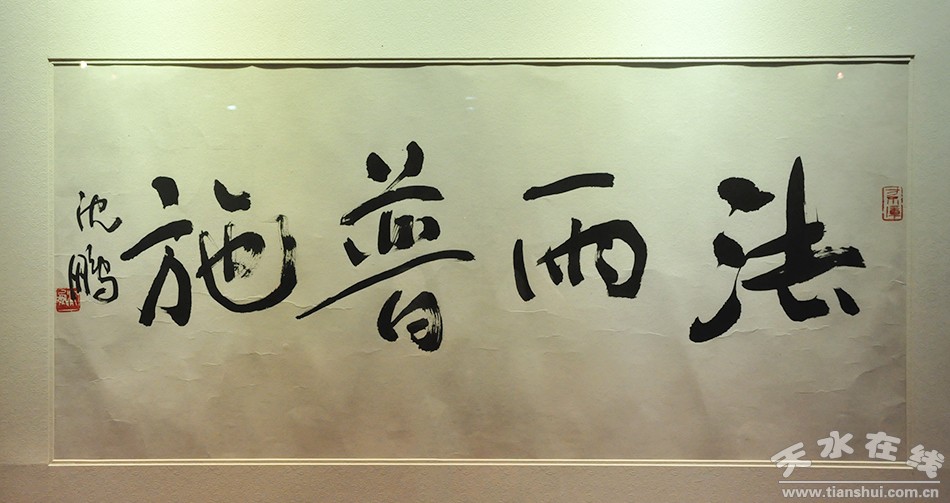 法雨普施
沈鹏
天水在线
www.tianshui.com.cn